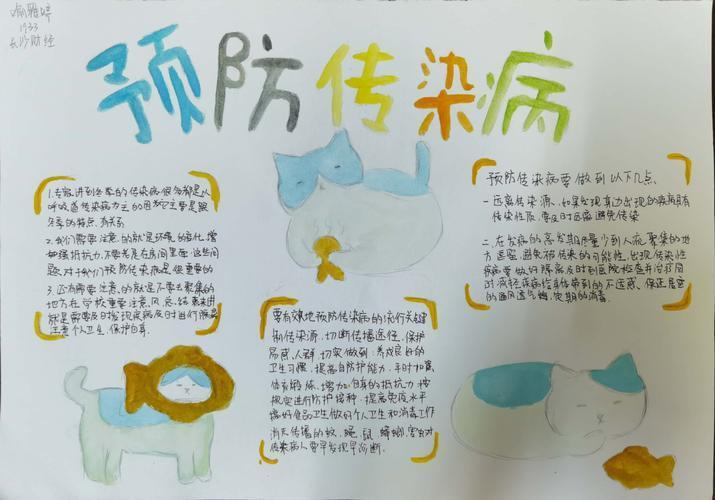 1933
长沙财经
预防传染病
1.专家讲到冬季的传染病很多都是以
呼吸道传染病为主的因为它主要是跟
冬季的特点有关系
2.我们需要注意的就是环境的变化,增
加强抵抗力,不要老是在房间里面,这些问
题,对于我们预防传染病是很重要的
3.还有需要注意的就是不要去聚集的
地方在学校里要注意风息,结束来讲
就是需要及时发现疾病及时
注意个人卫生,保护自身
要有效地预防传染病的流行关键
制传染源,切断传播途径,保护
易感人群,切实做到:养成良好的
卫生习惯,提高自防护能力,平时加强
体育锻炼,增加自身的抵抗力按
规定进行防护接种,提高免疫水平
搞好食品卫生做好个人卫生和消毒工作
消灭传播的蚊、蝇、鼠、蟑螂害虫对
传染病人要早发现早诊断.
预防传染病要做到以下几点.
一.远离传染源.如果发现身边出现的疾病具有
传染性质,要及时远离避免传染
二、在发病的高发期尽量少到人流聚集的地
方逗留,避免被传染的可能性,出现传染性
疾病要做好隔离及时到医院检查并治疗同
时减轻疾病给身体带到的不适感、保证居室
的通风透气,定期的消毒.